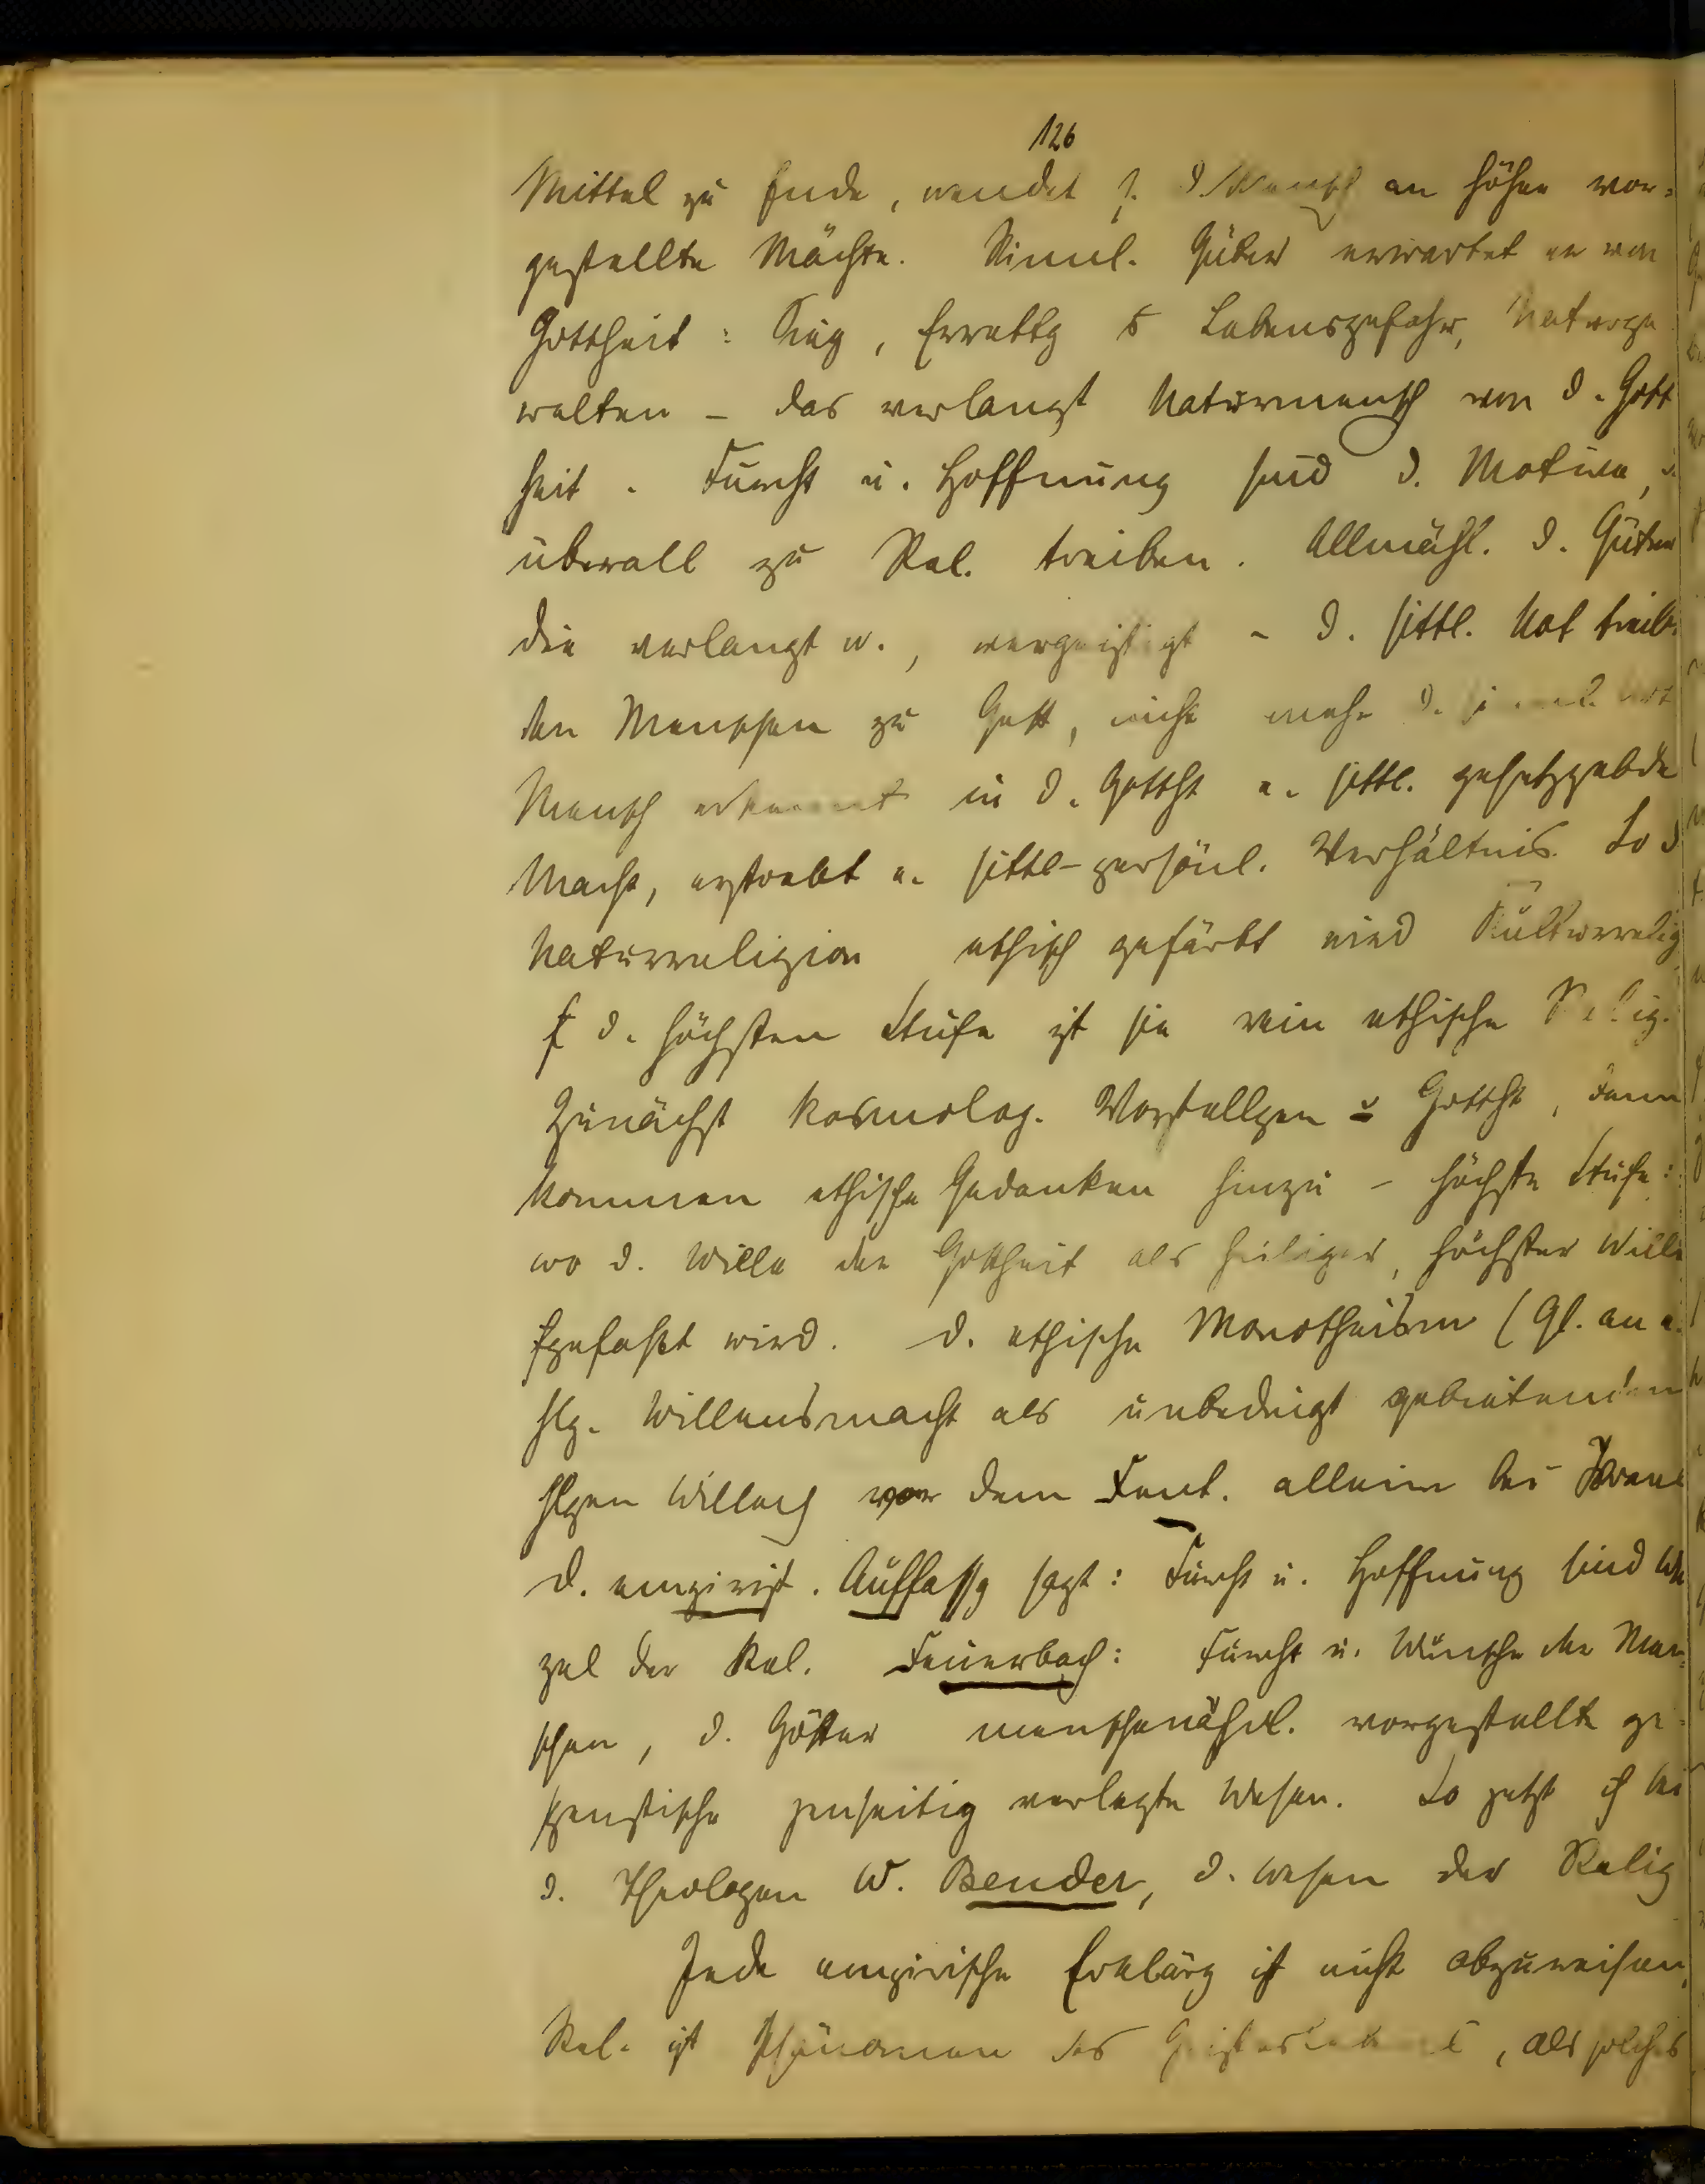 126
Mittel zu Ende, wendet s. d Mensch an höher vor-
gestellte Mächte. Sinnl. Güter erwartet er von
Gottheit: Sieg, Errettg Lebensgefahr, Naturge
walten – das verlangt Naturmensch von d. Gott
heit. Furcht u. Hoffnung sind d. Motive,
überall zu Rel. treiben. Allmähl. d. Güter
die verlangt w., vergeistigt – d. sittl. Not treibt
den Menschen zu Gott, nicht mehr d. sinnl. Not
Mensch erkennt in d. Gotth e. sittl. gesetzgebde
Macht, erstrebt e. sittl-persönl. Verhältnis. So d
Naturreligion ethisch gefärbt wird Kulturrelig
d. höchsten Stufe ist sie rein ethische Relig.
Zunächst kosmolog. Vorstellgen v Gotth, dann
kommen ethische Gedanken hinzu – höchste Stufe:
wo d. Wille der Gottheit als heiliger, höchster Wille
fgefaßt wird. D. ethische Monotheism (Gl. an e.
hlg. Willensmacht als unbedingt gebietenden
hlgen Willens) vor dem Xent. allein bei Israel
D. empirist. Auffassg sagt: Furcht u. Hoffnung sind Wur
zel der Rel. Feuerbach: Furcht u. Wünsche der Men-
schen, d. Götter menschenähnl. vorgestellte ge-
spenstische jenseitig verlegte Wesen. So jetzt bei
d. Theologen W. Bender, d. Wesen der Relig
Jede empirische Erklärg ist nicht abzuweisen,
Rel. ist Phänomen des Geisteslebens, als solches